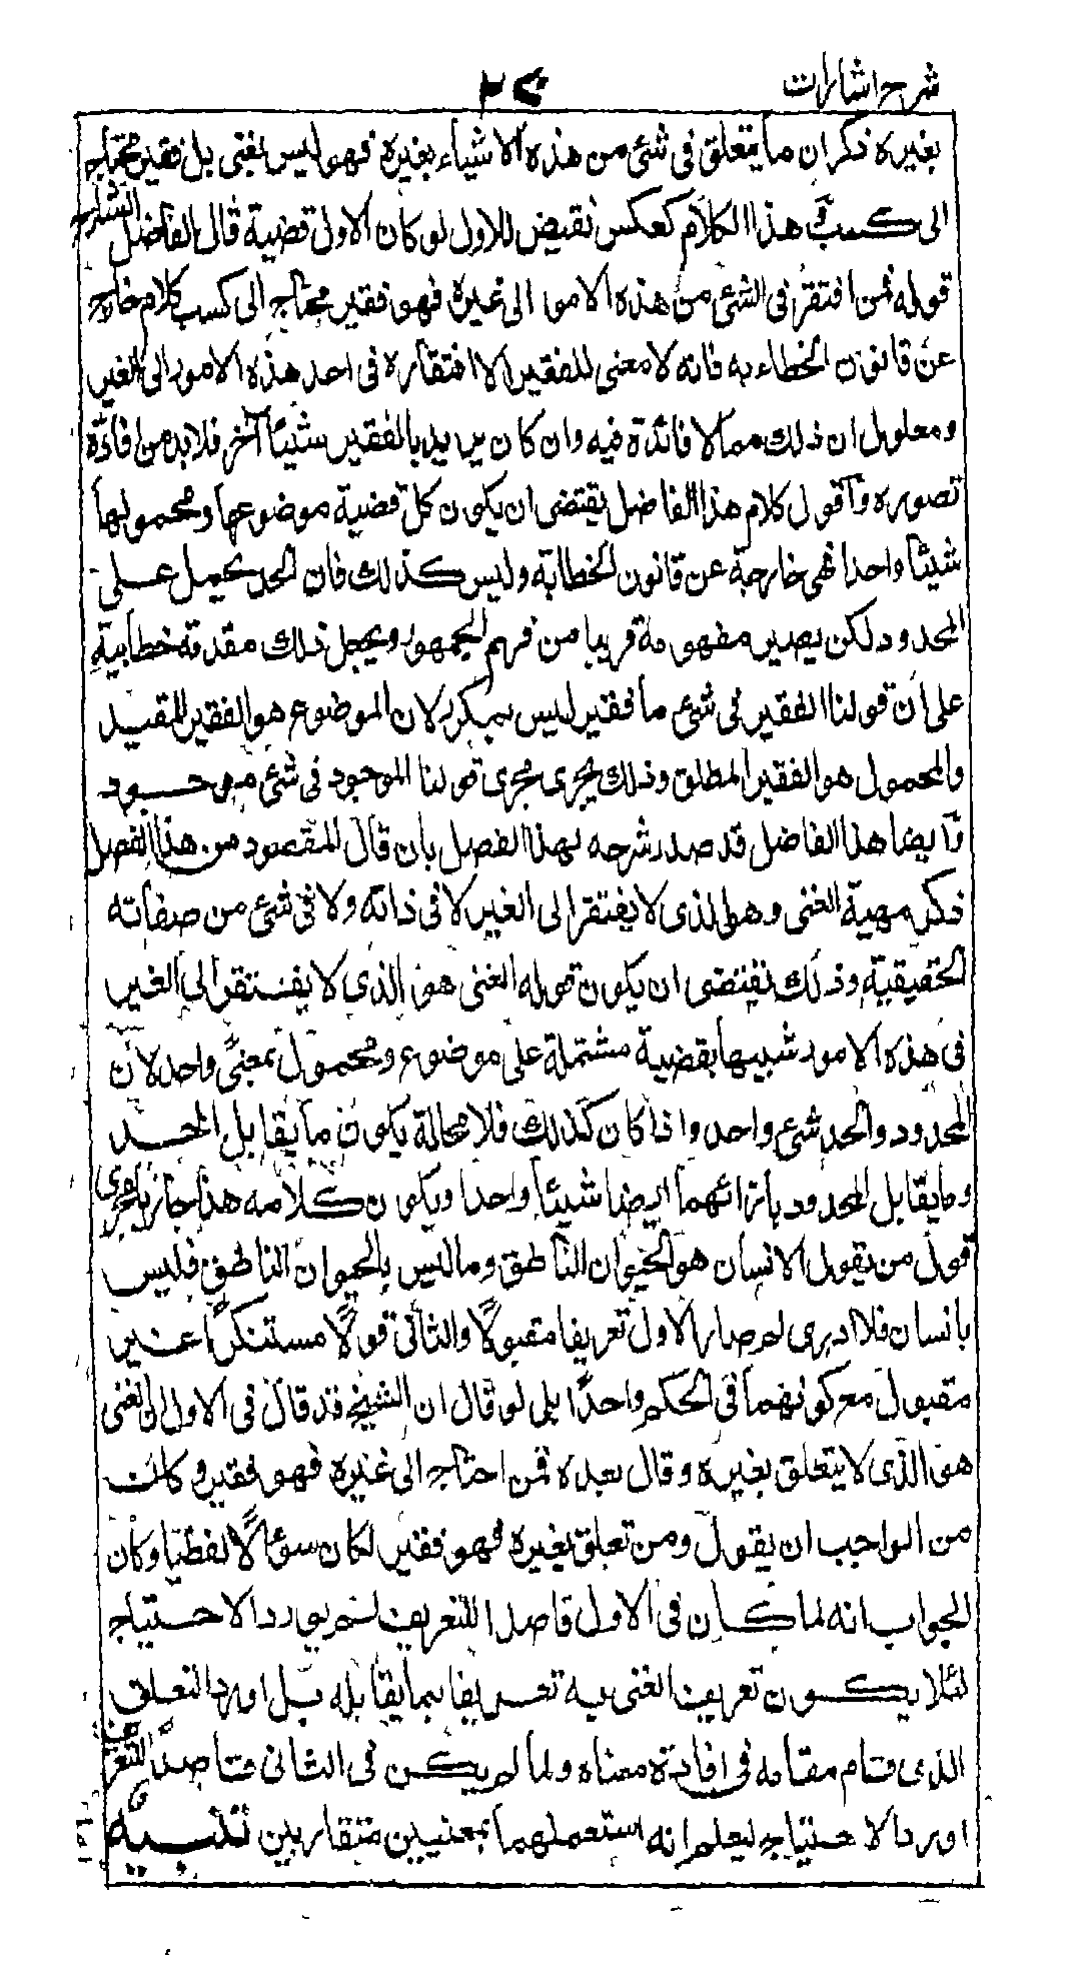 شرح اشارات
بغيره ذكر ان ما يتعلق فى شئ من هذه الاشياء بغيره فهو ليس بغنى بل فقير محتاج
الى كسب فى هذا الكلام كعكس نقيض للاول لو كان الاول قضية قال الفاضل الشارح
قوله فمن افتقر فى الشئ من هذه الامور الى غيره فهو فقير محتاج الى كسب كلام خارج
عن قانون الخطابه فانه لا معنى للفقير الا افتقاره فى احد هذه الامور الى الغير
ومعلوم ان ذلك مما لا فائدة فيه وان كان يريد بالفقير شيئا آخر فلابد من افادة
تصوره وآقول كلام هذا الفاضل يقتضى ان يكون كل قضية موضوعها ومحمولها
شيئا واحدا فهى خارجة عن قانون الخطابة وليس كذلك فان الحد يحمل على
المحدود لكن يصير مفهومه قريبا من فهم الجمهور ويجعل ذلك مقدمة خطابية
على ان قولنا الفقير فى شئ ما فقير ليس بمكرر لان الموضوع هو الفقير المقيد
والمحمول هو الفقير المطلق وذلك يجرى مجرى قولنا الموجود فى شئ موجود
وآيضا هذا الفاضل قد صدر شرحه لهذا الفصل بان قال المقصود من هذا الفصل
ذكر مهية الغنى وهو الذى لا يفتقر الى الغير لا فى ذاته ولا فى شئ من صفاته
الحقيقية وذلك يقتضى ان يكون قوله الغنى هو الذى لا يفتقر الى الغير
فى هذه الامور شبيها بقضية مشتملة على موضوع ومحمول بمعنى واحد لان
المحدود والحد شئ واحد واذا كان كذلك فلا محالة يكون ما يقابل الحد
وما يقابل المحدود بازائهما ايضا شيئا واحدا ويكون كلامه هذا جاريا مجرى
قول من يقول الانسان هو الحيوان الناطق وما ليس بالحيوان الناطق فليس
بانسان فلا ادرى لم صار الاول تعريفا مقبولا والثانى قولا مستنكرا غير
مقبول مع كونهما فى الحكم واحدا بلى لو قال ان الشيخ قد قال فى الاول الغنى
هو الذى لا يتعلق بغيره وقال بعده فمن احتاج الى غيره فهو فقير وكان
من الواجب ان يقول ومن تعلق بغيره فهو فقير لكان سؤالا لفظيا وكان
الجواب انه لما كان فى الاول قاصدا للتعريف لم يورد الاحتياج
لئلا يكون تعريف الغنى به تعريفا بما يقابله بل اورد التعلق
الذى قام مقامه فى افادة معناه ولما لم يكن فى الثانى قاصدا للتعريف
اورد الاحتياج ليعلم انه استعملهما بمعنيين متقاربين تنبيه